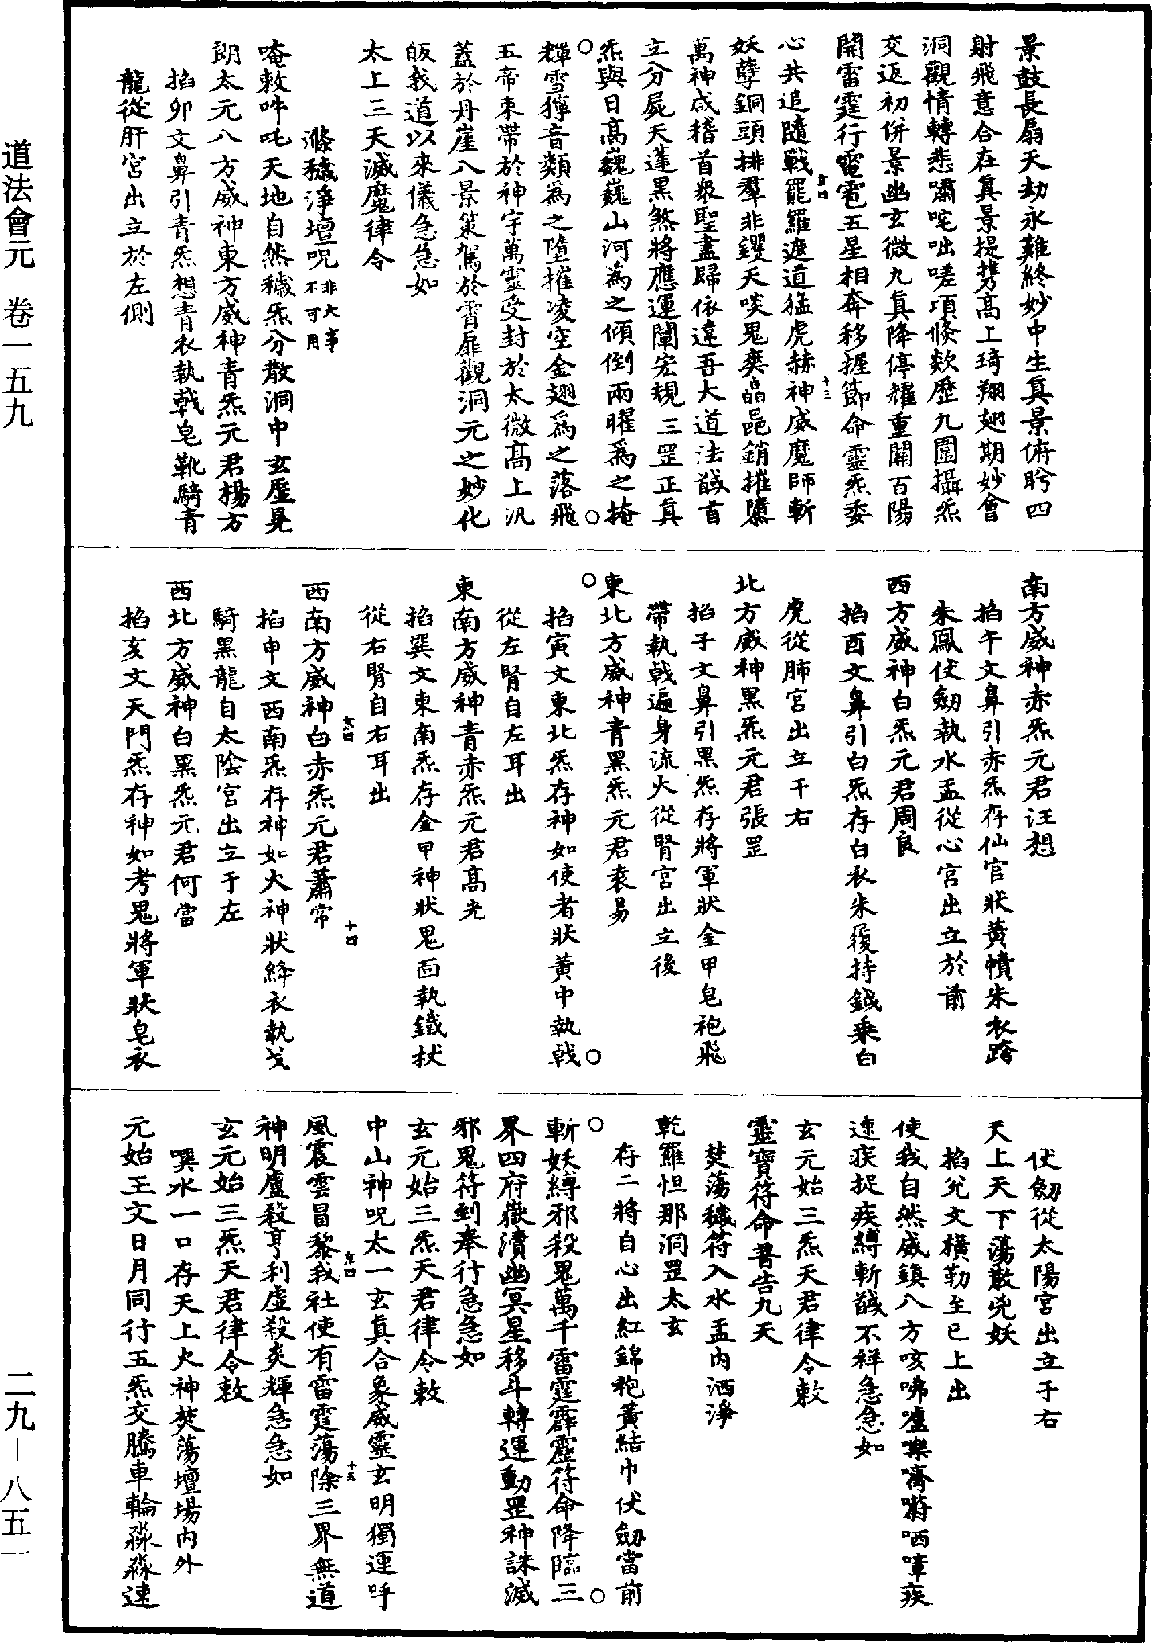 景鼓長扇天劫永難終妙中生真景俯眄四
射飛意合在真景提攜高上琦翔翅期妙會
洞觀情轉悲嘯咤咄嗟項倏歘歷九圍攝炁
交返初併景幽玄微九真降停耀重關百陽
開雷霆行電雹五星相奔移握節命靈炁委
心共追隨戰罷羅遮道猛虎赫神威魔師斬
妖孽銅頭排羣非鑁天啖鬼奕皛皅銷摧隳
萬神咸稽首衆聖盡歸依違吾大道法馘首
立分屍天蓬黑煞將應運闡宏規三罡正真
炁與日高巍巍山河為之傾倒兩曜為之掩
輝雪獰音類為之墮摧凌空金翅為之落飛
五帝束帶於神宇萬靈受封於太微高上汎
蓋於丹崖八景策駕於霄扉觀洞元之妙化
皈我道以來儀急急如
太上三天滅魔律令
滌穢淨壇呪非大事不可用
唵敕吽吒天地自然穢炁分散洞中玄虛晃
朗太元八方威神東方威神青炁元君楊方
掐卯文鼻引青炁想青衣執戟皂靴騎青
龍從肝宮出立於左側
南方威神赤炁元君汪想
掐午文鼻引赤炁存仙官狀黃幘朱衣跨
朱鳳仗劒執水盂從心宮出立於前
西方威神白炁元君周良
掐酉文鼻引白炁存白衣朱履持鉞乘白
虎從肺宮出立于右
北方威神黑炁元君張罡
掐子文鼻引黑炁存將軍狀金甲皂袍飛
帶執戟遍身流火從腎宮出立後
東北方威神青黑炁元君袁昜
掐寅文東北炁存神如使者狀黃巾執戟
從左腎自左耳出
東南方威神青赤炁元君高充
掐巽文東南炁存金甲神狀鬼面執鐵杖
從右腎自右耳出
西南方威神白赤炁元君蕭常
掐申文西南炁存神如大神狀絳衣執戈
騎黑龍自太陰宮出立于左
西北方威神白黑炁元君何當
掐亥文天門炁存神如考鬼將軍狀皂衣
仗劒從太陽宮出立于右
天上天下蕩散兇妖
掐兌文橫勒至巳上出
使我自然威鎮八方咳咈嚧㗚嚌㗲哂嘩疾
速疾捉疾縛斬馘不祥急急如
玄元始三炁天君律令敕
靈寶符命普告九天
焚蕩穢符入水盂內洒淨
乾羅怛那洞罡太玄
存二將自心出紅錦袍黃結巾仗劒當前
斬妖縛邪殺鬼萬千雷霆霹靂符命降臨三
界四府嶽瀆幽冥星移斗轉運動罡神誅滅
邪鬼符到奉行急急如
玄元始三炁天君律令敕
中山神呪太一玄真合象威靈玄明獨運呼
風震雲冒黎我社使有雷霆蕩除三界無道
神明盧殺亨利虛殺炎輝急急如
玄元始三炁天君律令敕
噀水一口存天上火神焚蕩壇場內外
元始王文日月同行五炁交騰車輪淼淼速
道法會元　卷一五九
二九－八五一
十三
十四
十五